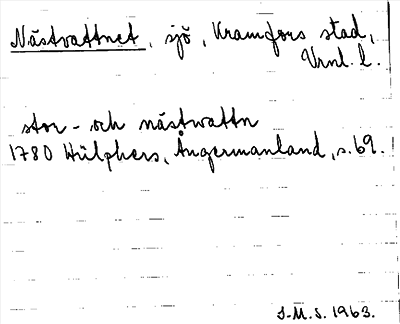 Nästvattnet, sjö, Kramfors stad,
Vrnl. l.
stor- och nästwattn
1780 Hülphers, Ångermanland, s. 69.
S-M. S. 1963.